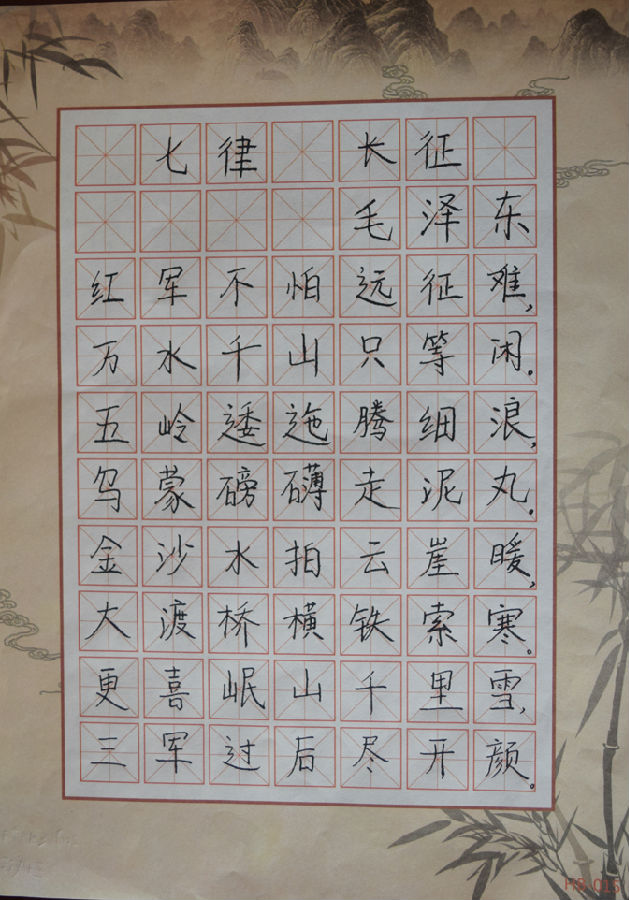 七律 长征
毛泽东
红军不怕远征难,
万水千山只等闲.
五岭逶迤腾细浪,
乌蒙磅礴走泥丸.
金沙水拍云崖暖,
大渡桥横铁索寒。
更喜岷山千里雪,
三军过后尽开颜。
HB 015